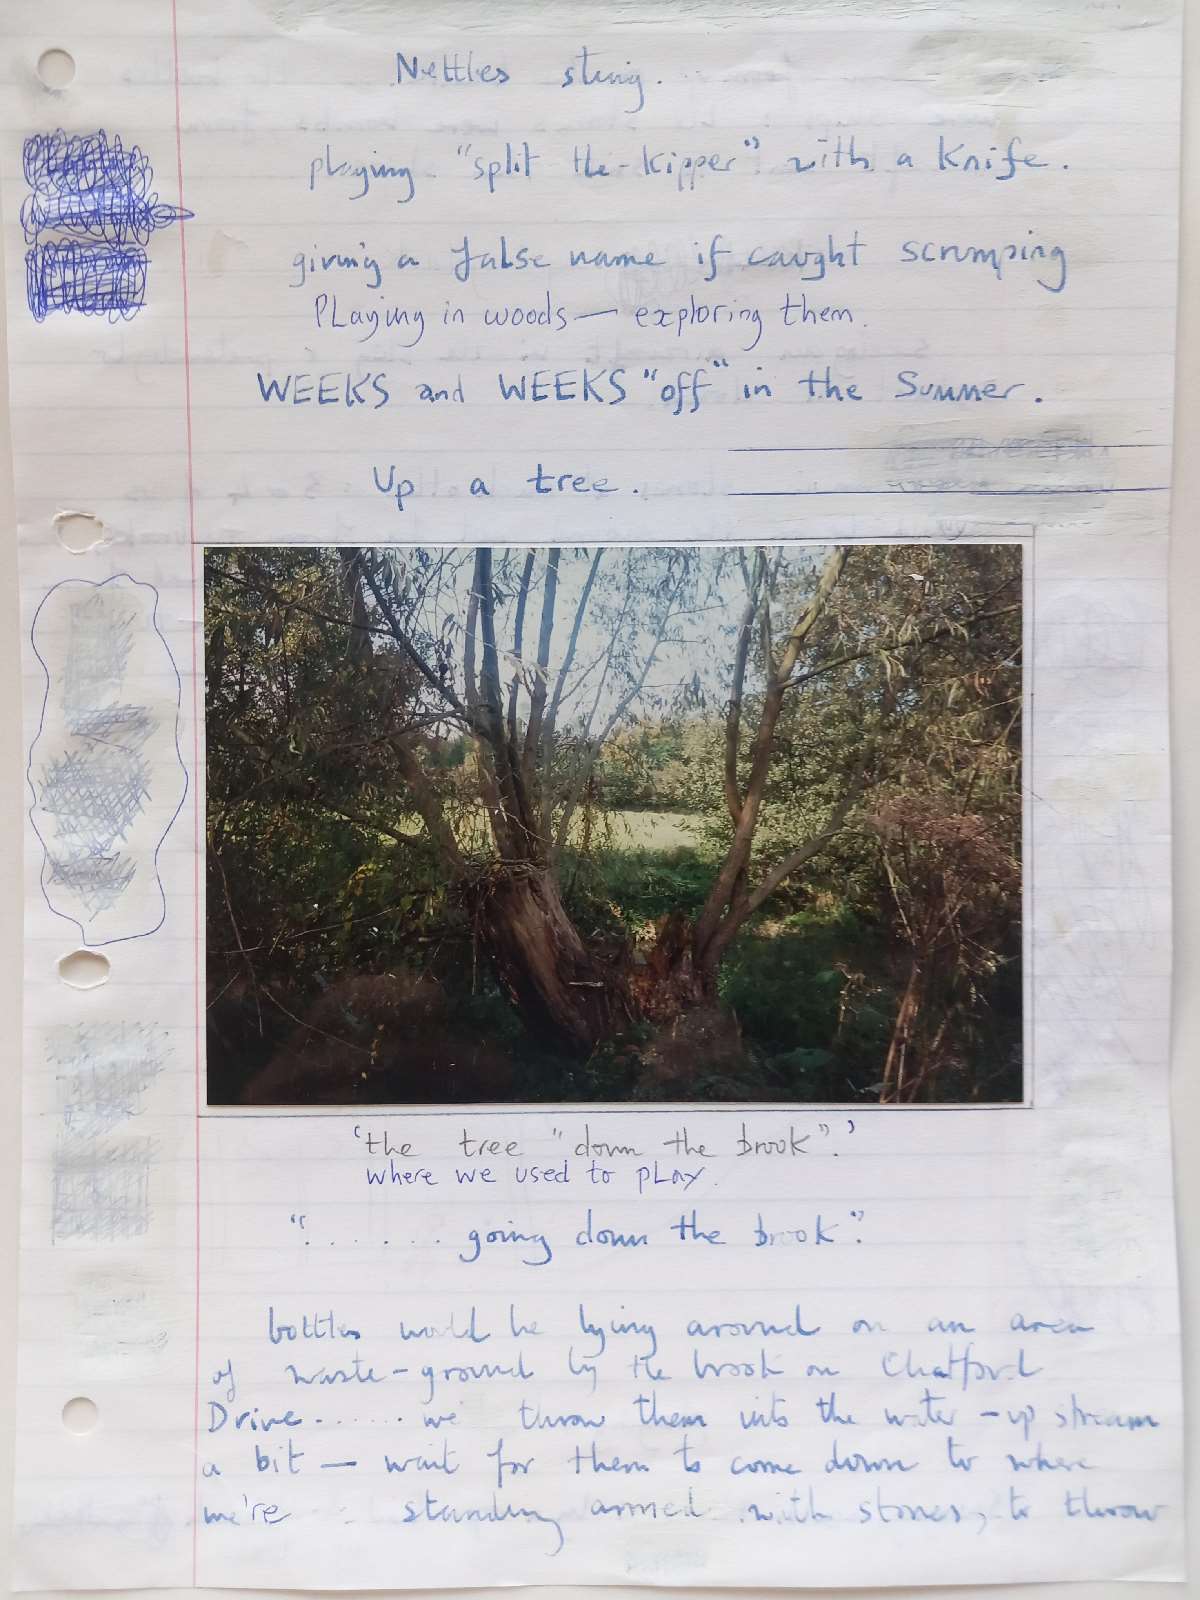 Nettles sting.
playing "split the-kipper" with a knife.
giving a false name if caught scrumping
Playing in woods — exploring them.
WEEKS and WEEKS "off" in the Summer.
Up a tree.
'the tree "down the brook".'
where we used to play.
"....... going down the brook".
bottles would be lying around on an area
of waste-ground by the brook on Chatford
Drive....... we throw them into the water - up stream
a bit — wait for them to come down to where
we're standing armed with stones, to throw